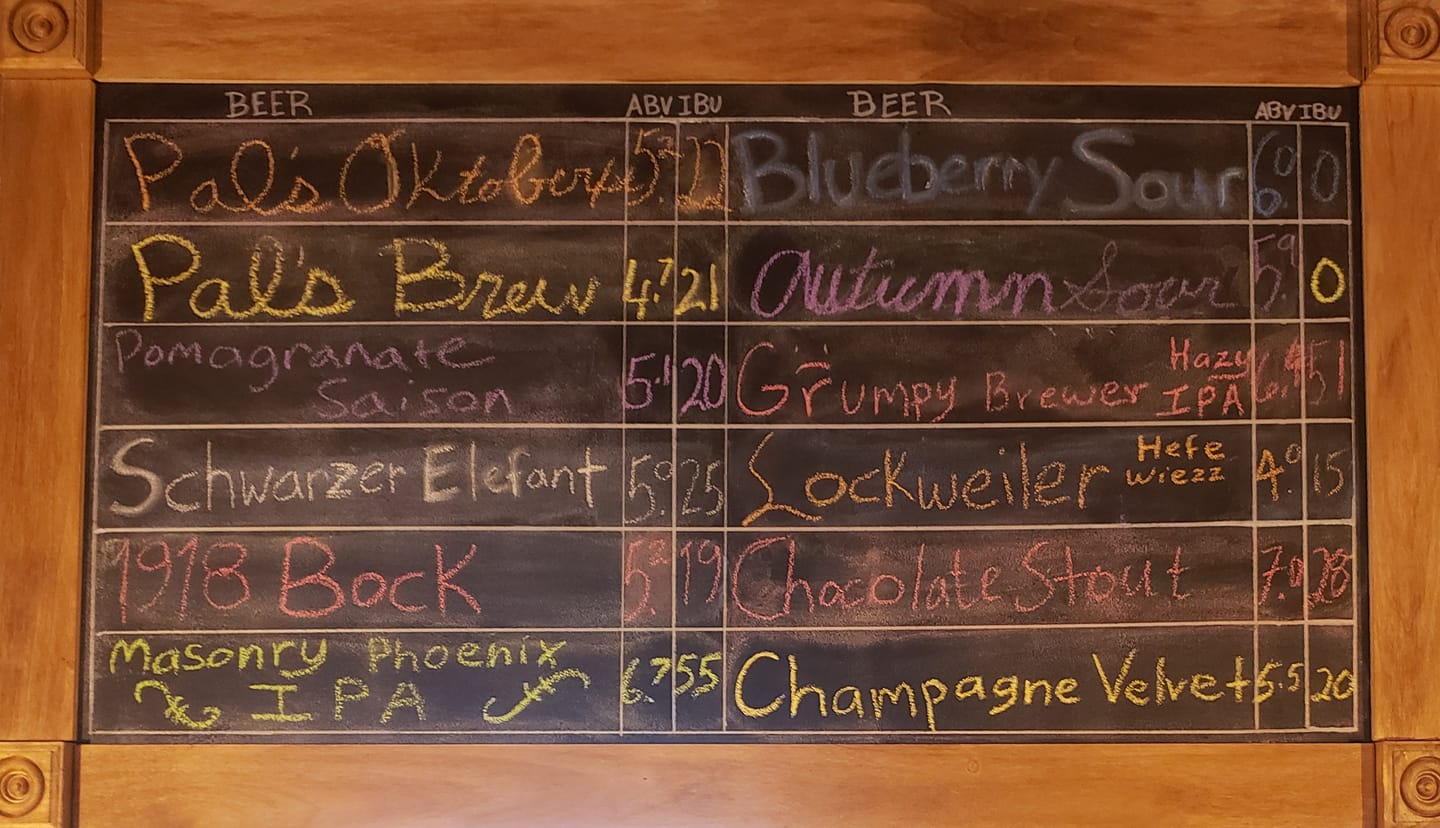 BEER ABV IBU BEER ABV IBU
Pal's Oktober 5.2 22 Blueberry Sour 6.0 0
Pal's Brew 4.7 21 Autumn Sour 5.9 0
Pomagranate
Saison 5.1 20
Grumpy Brewer Hazy
IPA 51
Schwarzer Elefant 5.0 25 Lockweiler Hefe
Wiezz 4.0 15
1918 Bock 5.2 19 Chocolate Stout 7.0 28
Masonry Phoenix
IPA 6.7 55 Champagne Velvet 5.5 20